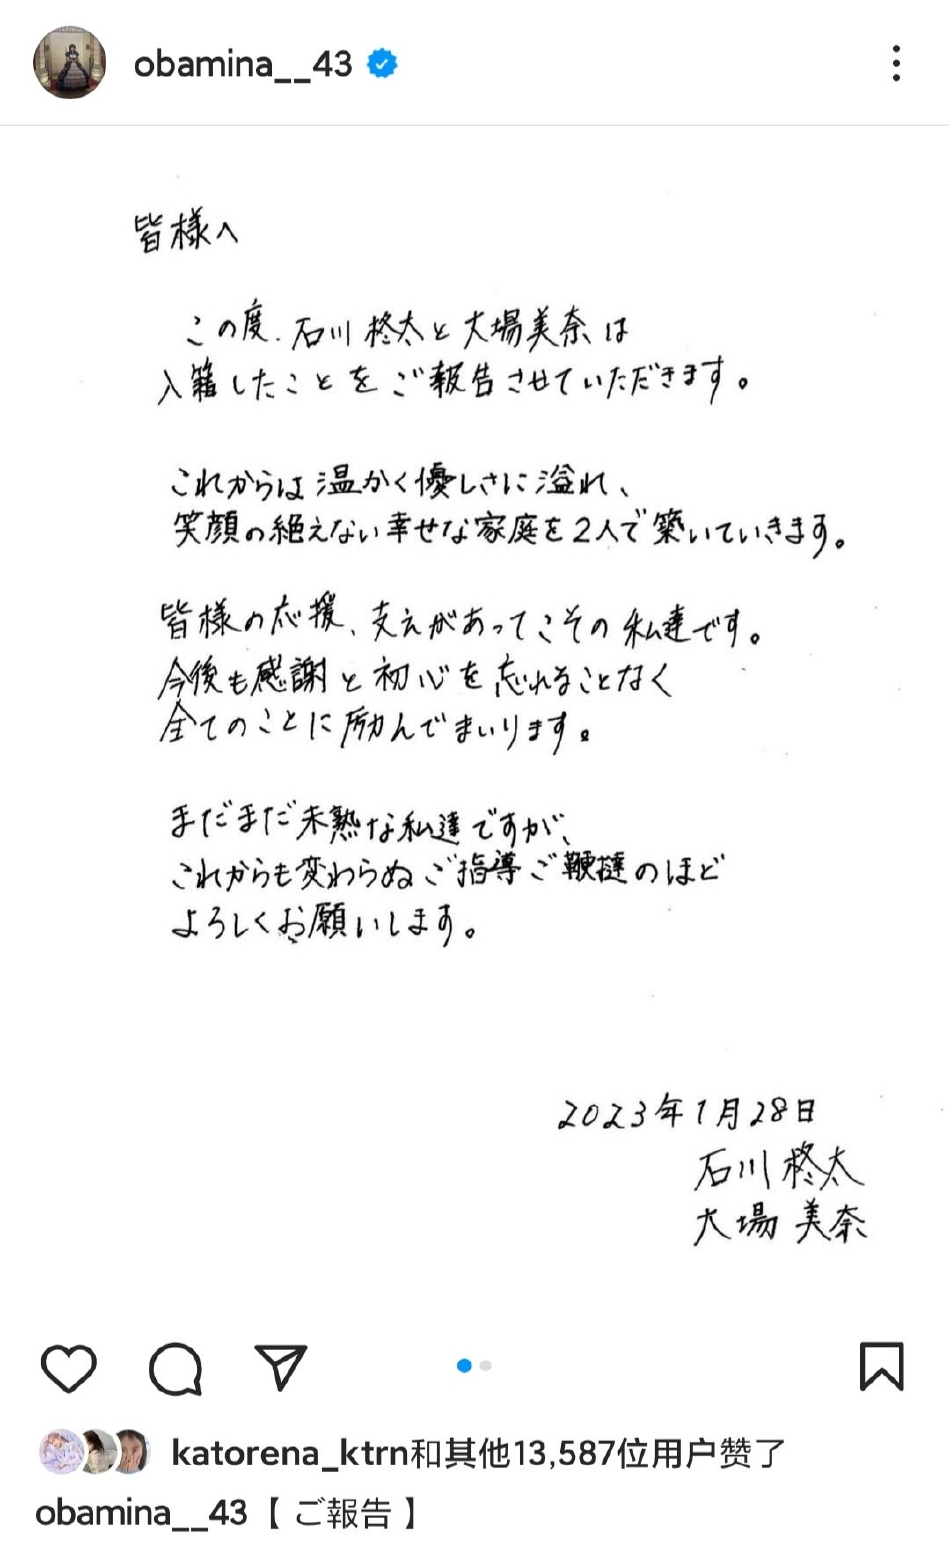 obamina__43
皆様へ
この度、石川柊太と大場美奈は
入籍したことをご報告させていただきます。
これからは温かく優しさに溢れ、
笑顔の絶えない幸せな家庭を2人で築いていきます。
皆様の応援、支えがあってこその私達です。
今後も感謝と初心を忘れることなく
全てのことに励んでまいります。
まだまだ未熟な私達ですが、
これからも変わらぬご指導ご鞭撻のほど
よろしくお願いします。
2023年1月28日
石川柊太
大場美奈
katorena_ktrn和其他13,587位用户赞了
obamina__43【ご報告】